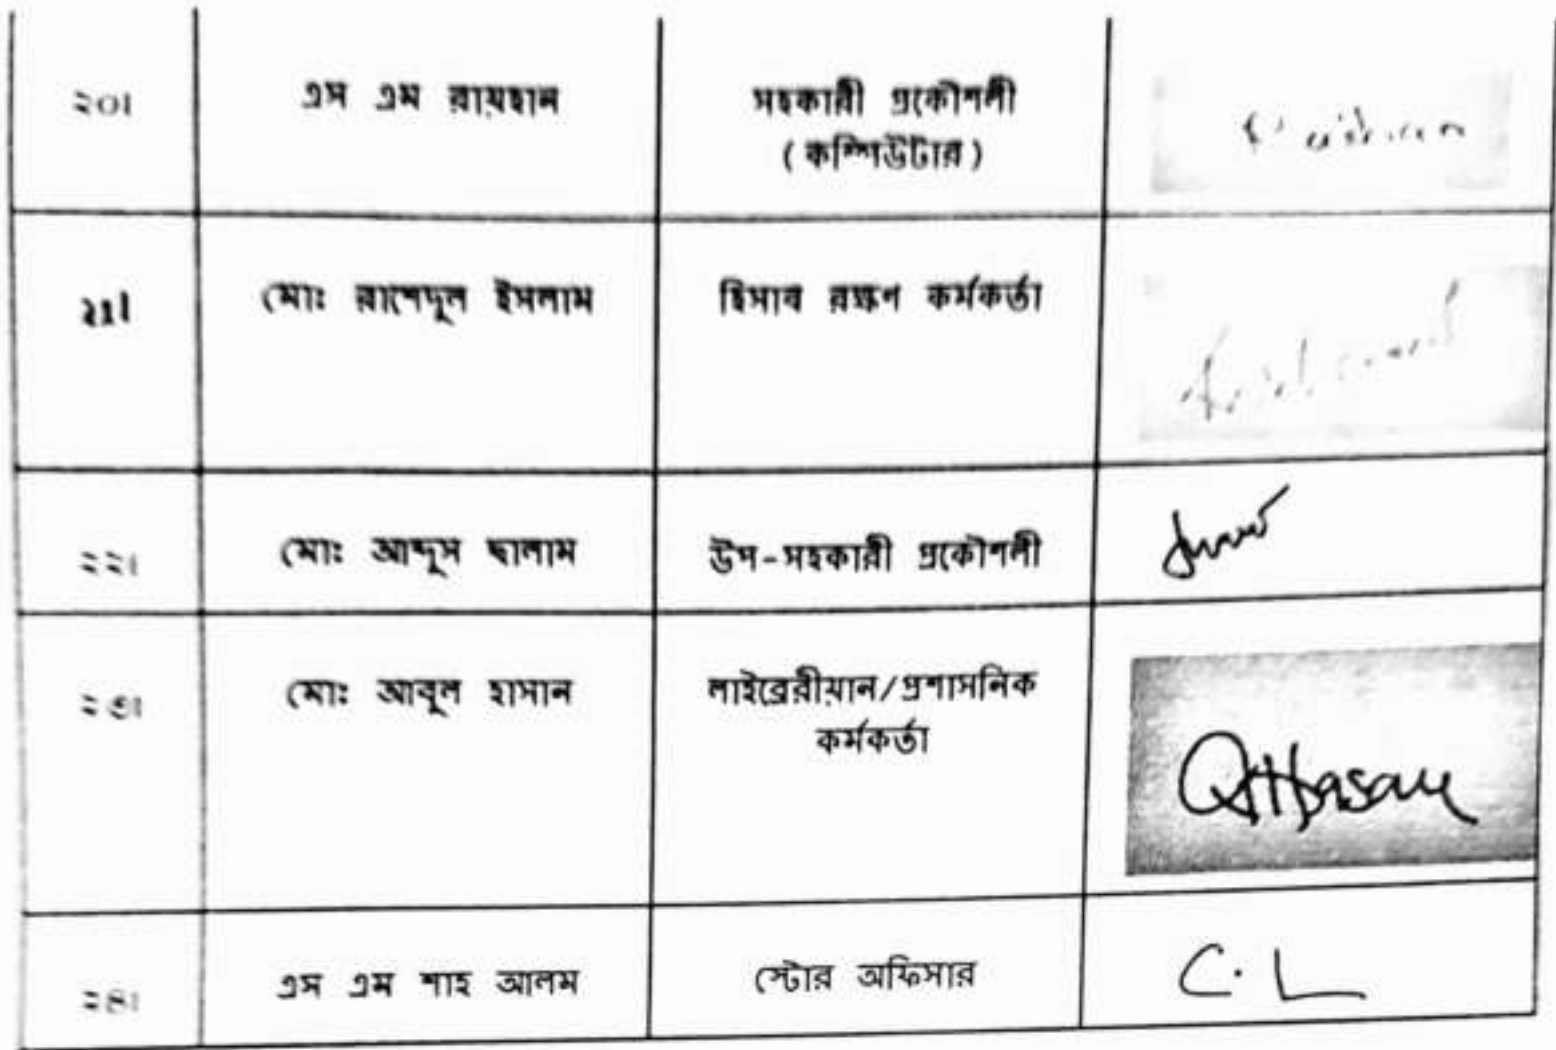 ২০। এস এম রায়হান সহকারী প্রকৌশলী
(কম্পিউটার)
২১। মোঃ রাশেদুল ইসলাম হিসাব রক্ষণ কর্মকর্তা
২২। মোঃ আব্দুস ছালাম উপ-সহকারী প্রকৌশলী
২৩। মোঃ আবুল হাসান লাইব্রেরীয়ান/প্রশাসনিক
কর্মকর্তা
AHasan
২৪। এস এম শাহ আলম স্টোর অফিসার C.L